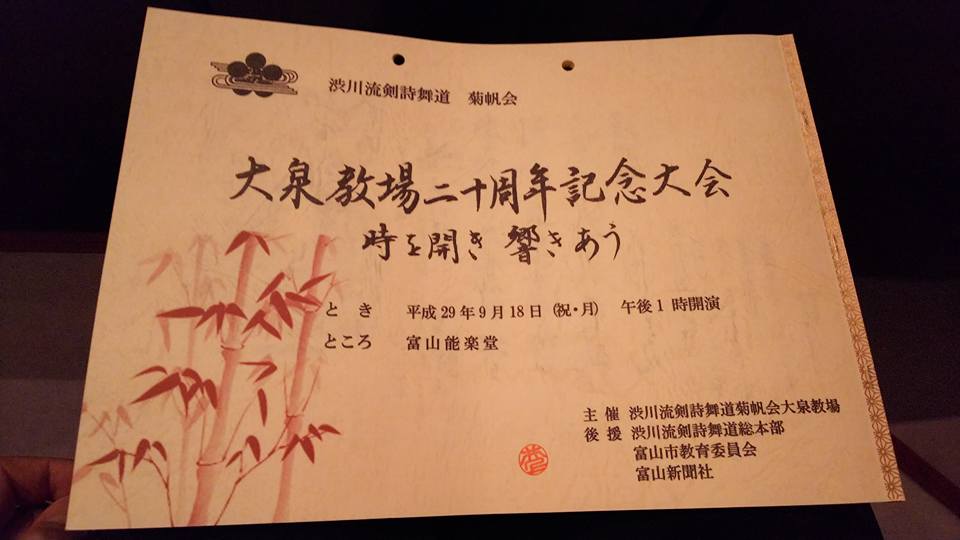 渋川流剣詩舞道 菊帆会
大泉教場二十周年記念大会
時を開き 響きあう
とき 平成29年9月18日(祝・月) 午後1時開演
ところ 富山能楽堂
主催 渋川流剣詩舞道菊帆会大泉教場
後援 渋川流剣詩舞道総本部
富山市教育委員会
富山新聞社